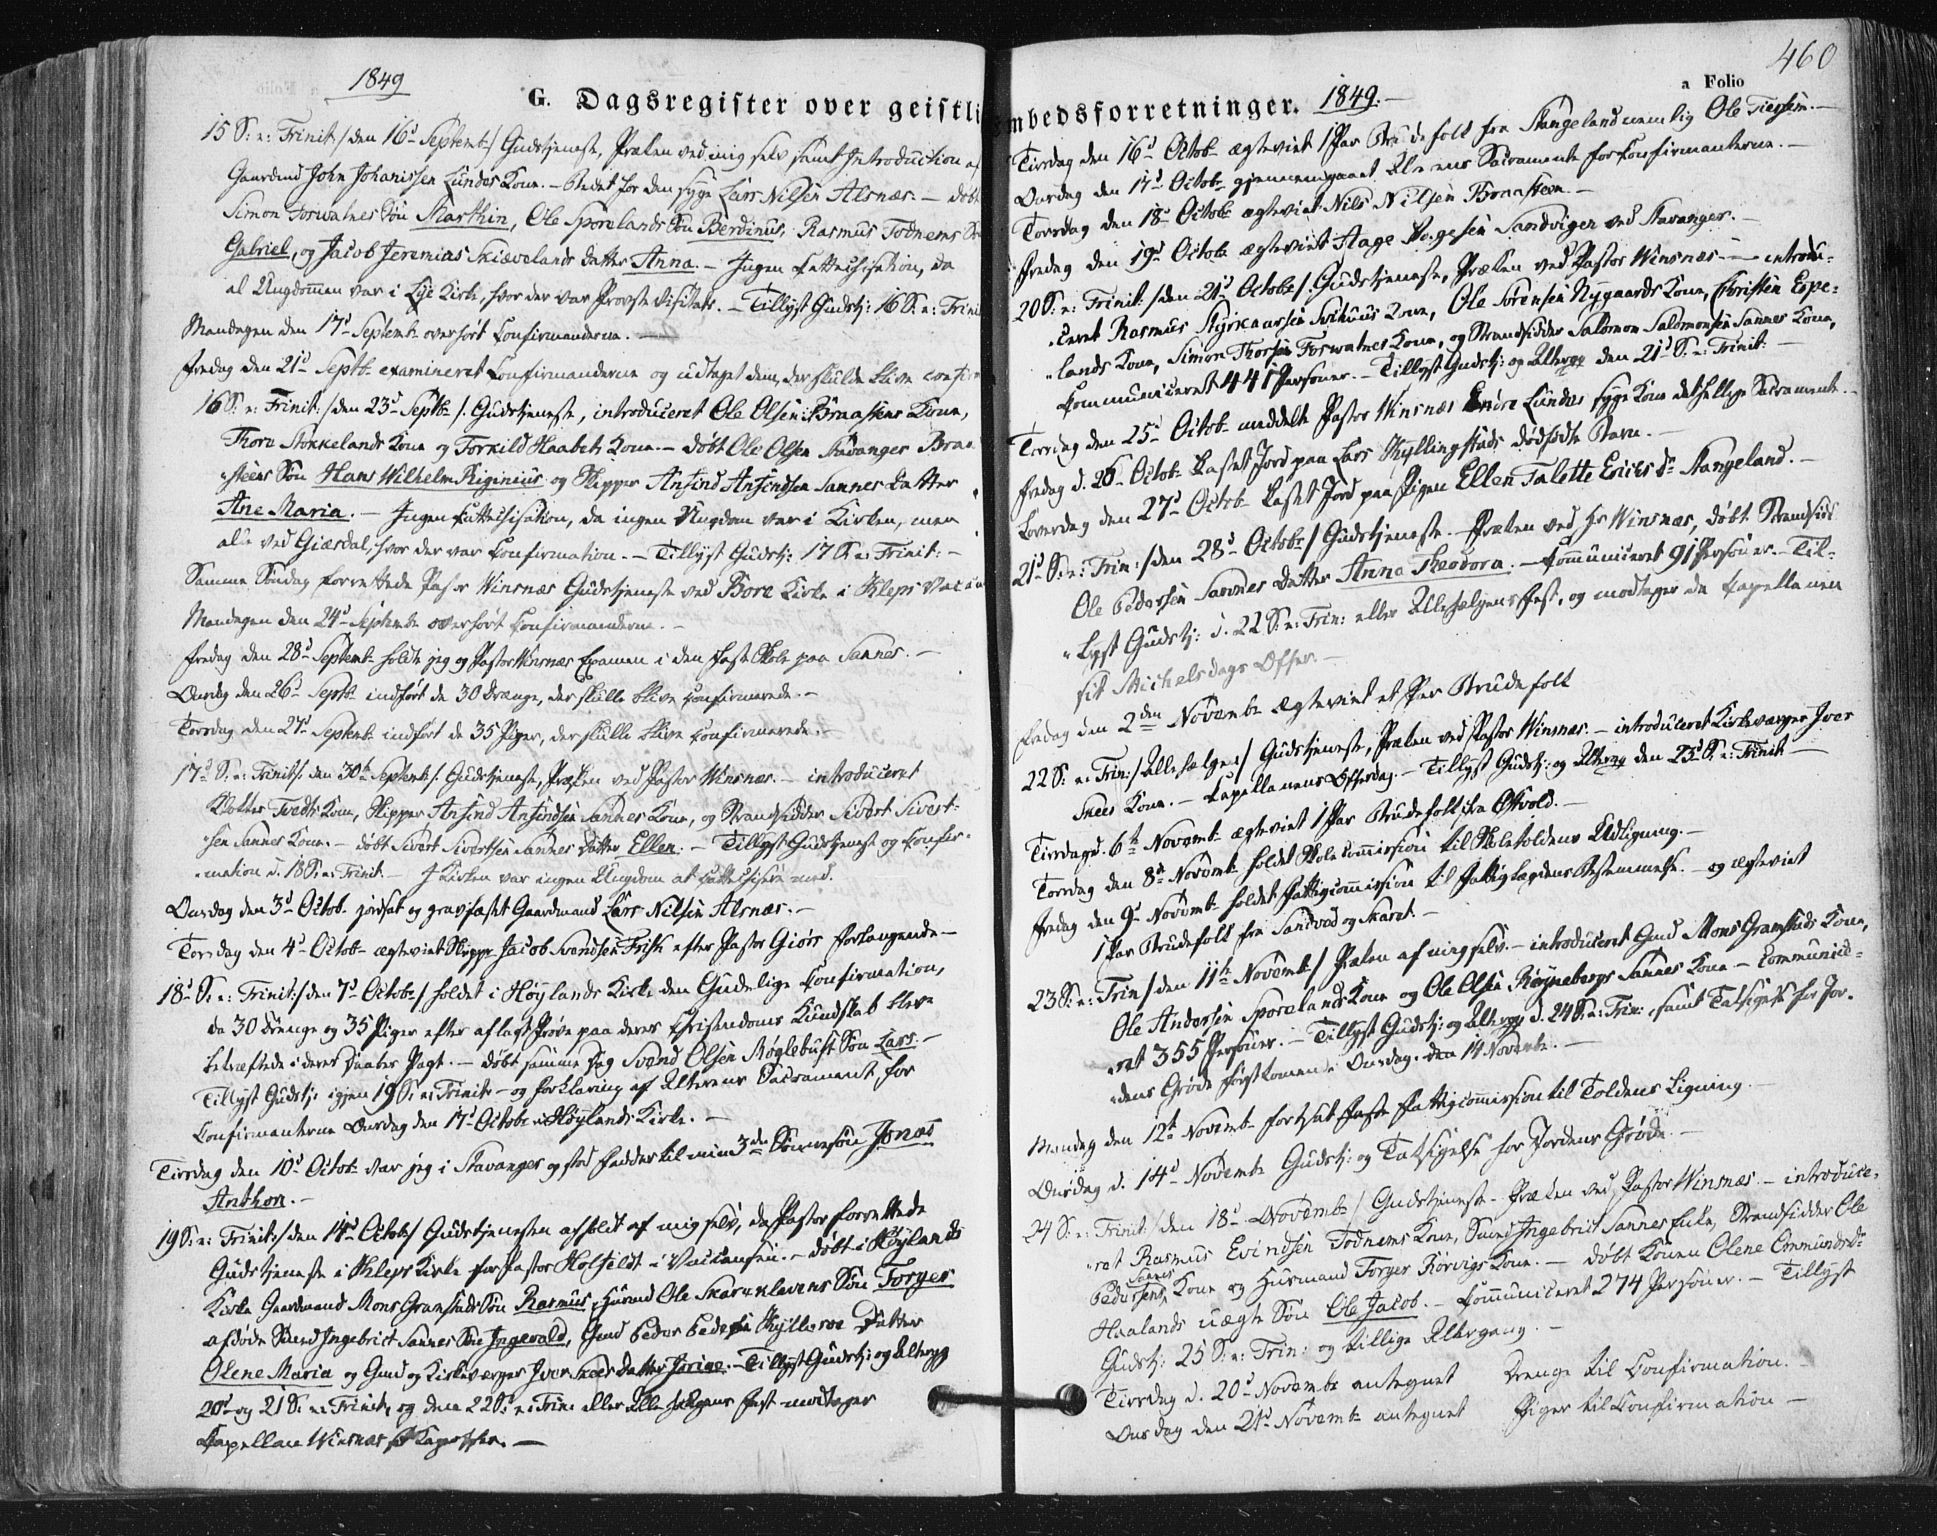 1849
G. Dagsregister over geistli
15 S: e: Trinit:/ den 16d Septemb:/ Gudstjeneste, Præken ved mig selv samt Introduction af
Gaardmd John Johanissen Lundes Kone. – Bedet for den syge Lars Nilsen Alsnæs. – døbt
Simon Forwatnes Søn Marthin, Ole Sporelands Søn Berdinus, Rasmus Todnems Søn
Gabriel, og Jacob Jeremias Skiævelands Datter Anna. – Ingen Cattechisation, da
al Ungdommen var i Lye Kirke, hvor der var Provste Visitats. – Tillyst Gudstj: 16 S: e: Trinit
Mandagen den 17d Septemb: overhørt Confirmanderne. –
Fredag den 21d Septb: examineret Confirmanderne og udtaget dem, der skulde blive confir
16 S: e: Trinit:/ den 23d Septb:/ Gudstjeneste, introduceret Ole Olsen Braasteens Kone,
Thore Stokkelands Kone og Torkild Haabets Kone. – døbt Ole Olsen Stavanger Braa
steens Søn Hans Wilhelm Riginius og Skipper Ansind Ansindsen Sannes Datter
Ane Maria. – Ingen Cattechisation, da ingen Ungdom var i Kirken, men
alle ved Giæsdal, hvor der var Confirmation. – Tillyst Gudstj: 17 S: e: Trinit: –
Samme Søndag forrettede Pastor Winsnæs Gudstjeneste ved Bore Kirke i Kleps
Mandagen den 24d Septembe overhørt Confirmanderne. –
Fredag den 28d Septemb: holdt jeg og Pastor Winsnæs Examen i den faste Skole paa Sannes. –
Onsdag den 26d Septb: indført de 30 Drænge, der skulle blive confirmerede. –
Torsdag den 27d Septemb: indført de 35 Piger, der skulle blive Confirmerede. –
17d S: e: Trinit/: den 30te Septemb/: Gudstjeneste, Præken ved Pastor Winsnæs. – introduceret
Tvedts Kone, Skipper Ansind Ansindsen Sannes Kone, og Strandsidder Sivert Sivert-
sen Sannes Kone. – døbt Sivert Sivertsen Sannes Datter Ellen. – Tillyst Gudstjeneste og Confir-
mation d. 18 S: e: Trinit. – I Kirken var ingen Ungdom at Cattechisere med.
Onsdag den 3d Octob: jordsat og gravfæstet Gaardmand Lars Nilsen Alsnæs. –
Torsdag den 4d Octob: ægteviet Skipper Jacob Svendsen Frisk efter Pastor Giørs forlangende –
18d S: e: Trinit:/ den 7d Octob:/ holdet i Høylands Kirke den Gudelige Confirmation,
da 30 Drenge og 35 Piger efter aflagt Prøve paa deres Christendoms Kundskab bleve
bekræftede i deres Daabes Pagt. – døbt samme Dag Svend Olsen Røglebust Søn Lars. –
Tillyst Gudstj: igjen 19 S: e: Trinit: – og forklaring af Alterens Sacrament for
Confirmanterne Onsdag den 17d Octob: i Høylands Kirke. –
Tirsdag den 10d Octob: var jeg i Stavanger og stod Fadder til min 3de Sønnesøn Jonas
Anthon. –
19 S: e: Trinit:/ den 14d Octob/ Gudstjenesten afholdt af mig selv, da Pastor forrettede
Gudstjeneste i Kleps Kirke for Pastor Holfeldt i Vaccansen. – døbt i Høylands
Kirke Gaardmand Mons Gramstads Søn Rasmus, Huusmd Ole Skaruklevens Søn Torger
afdøde Smed Ingebrict Sannes Søn Ingevald, Gmd Peder Pedersen Kyllesve Datter
Olene Maria og Gmd og Kirkeverger Iver Skees Datter . – Tillyst Gudstj: og Alterg
20d og 21 S: e: Trinit, og den 22d S: e: Trin: eller Alle helgens Fest modtager
Capellan Winsnæs .–
460
a Folio
mbedsforretninger. 1849. –
Tirsdag den 16d Octob: ægteviet 1 Par Brudefolk fra Stangeland nemlig Ole . –
Onsdag den 17d Octob: gjennemgaaet Alterens Sacramente for Confirmanterne. –
Torsdag den 18d Octob: ægteviet Nils Nilsen Braasteen. –
Fredag den 19d Octob: ægteviet Aage Sandvigen ved Stavanger. –
20 S: e: Trinit: /den 21d Octob:/ Gudstjeneste, Præken ved Pastor Winsnæs – introdu-
ceret Rasmus Styrkaarsen Kone, Ole Sørensen Nygaards Kone, Christen Espe-
lands Kone, Simon Thorsen Forwatnes Kone, og Strandsidder Salomon Salomonsen Sannes Kone,
Communiceret 441 Personer. – Tillyst Gudstj: og Alterg den 21d S: e: Trinit: –
Torsdag den 25d Octob: meddelte Pastor Winsnæs Endre Lundes syge Kone det hellige Sacramente. –
Fredag d. 26 Octob: kastet Jord paa Lars Kyllingstads dødfødte Barn. –
Løverdag den 27d Octob: kastet Jord paa Pigen Ellen Talette Ericksdr Stangeland. –
21d S: e: Trin: /den 28d Octob:/ Gudstjeneste – Præken ved Hr Winsnæs, døbt Strandsid
Ole Pedersen Sannes Datter Anna Theodora. – Communiceret 91 Personer. – Til-
lyst Gudstj: d. 22 S: e: Trin: eller Allehelgens Fest, og modtager da Capellanen
sit Michelsdags Offer. –
Fredag den 2den Novembr ægteviet et Par Brudefolk
22 S: e: Trin:/ Allehelgen/ Gudstjeneste, Præken ved Pastor Winsnæs. – introduceret Kirkeværger Iver
Skees Kone. – Capellanens Offerdag. – Tillyst Gudstj: og Alterg den 23d S: e: Trinit –
Tirsdag d. 6te Novemb: ægteviet 1 Par Brudefolk fra Østvold. –
Torsdag den 8de Novemb: holdet Skolecommission til Skoletoldens Udligning. –
Fredag den 9d Novemb: holdet Fattigcommission til Fattiglægdens Bestemmelse. – og ægteviet
1 Par Brudefolk fra Sandved og Skaret. –
23 S: e: Trin/ den 11te Novemb:/ Præken af mig selv. – introduceret Gmd Mons Gramstads Kone,
Ole Andersen Sporelands Kone og Ole Olsen Røyneberg Sannes Kone – Communice-
ret 355 Personer. – Tillyst Gudstj: og Alterg d. 24 S: e: Trin:, samt Taksigelse for Jor-
dens Grøde førstkomende Onsdag den 14 Novembr. –
Mandag den 12te Novemb: fortsat faste Fattigcommission til Toldens Ligning. –
Onsdag d. 14d Novembr Gudstj: og Taksigelse for Jordens Grøde. –
24 S: e: Trinit:/ den 18d Novemb:/ Gudstjeneste – Præken ved Pastor Winsnæs – introduce-
ret Rasmus Evindsen Todnems Kone, Smed Ingebrict Sannes Enke, Strandsidder Ole
Pedersens Sannes Kone og Huusmand Torger Rørvigs Kone. – døbt Konen Olene Ommundsdr
Haalands uægte Søn Ole Jacob. – Communiceret 274 Personer. – Tillyst
Gudstj: 25 S: e: Trin: og tillige Altergang. –
Tirsdag d. 20d Novembr antegnet Drenge til Confirmation. –
Onsdag den 21d Novemb: antegnet Piger til Confirmation –